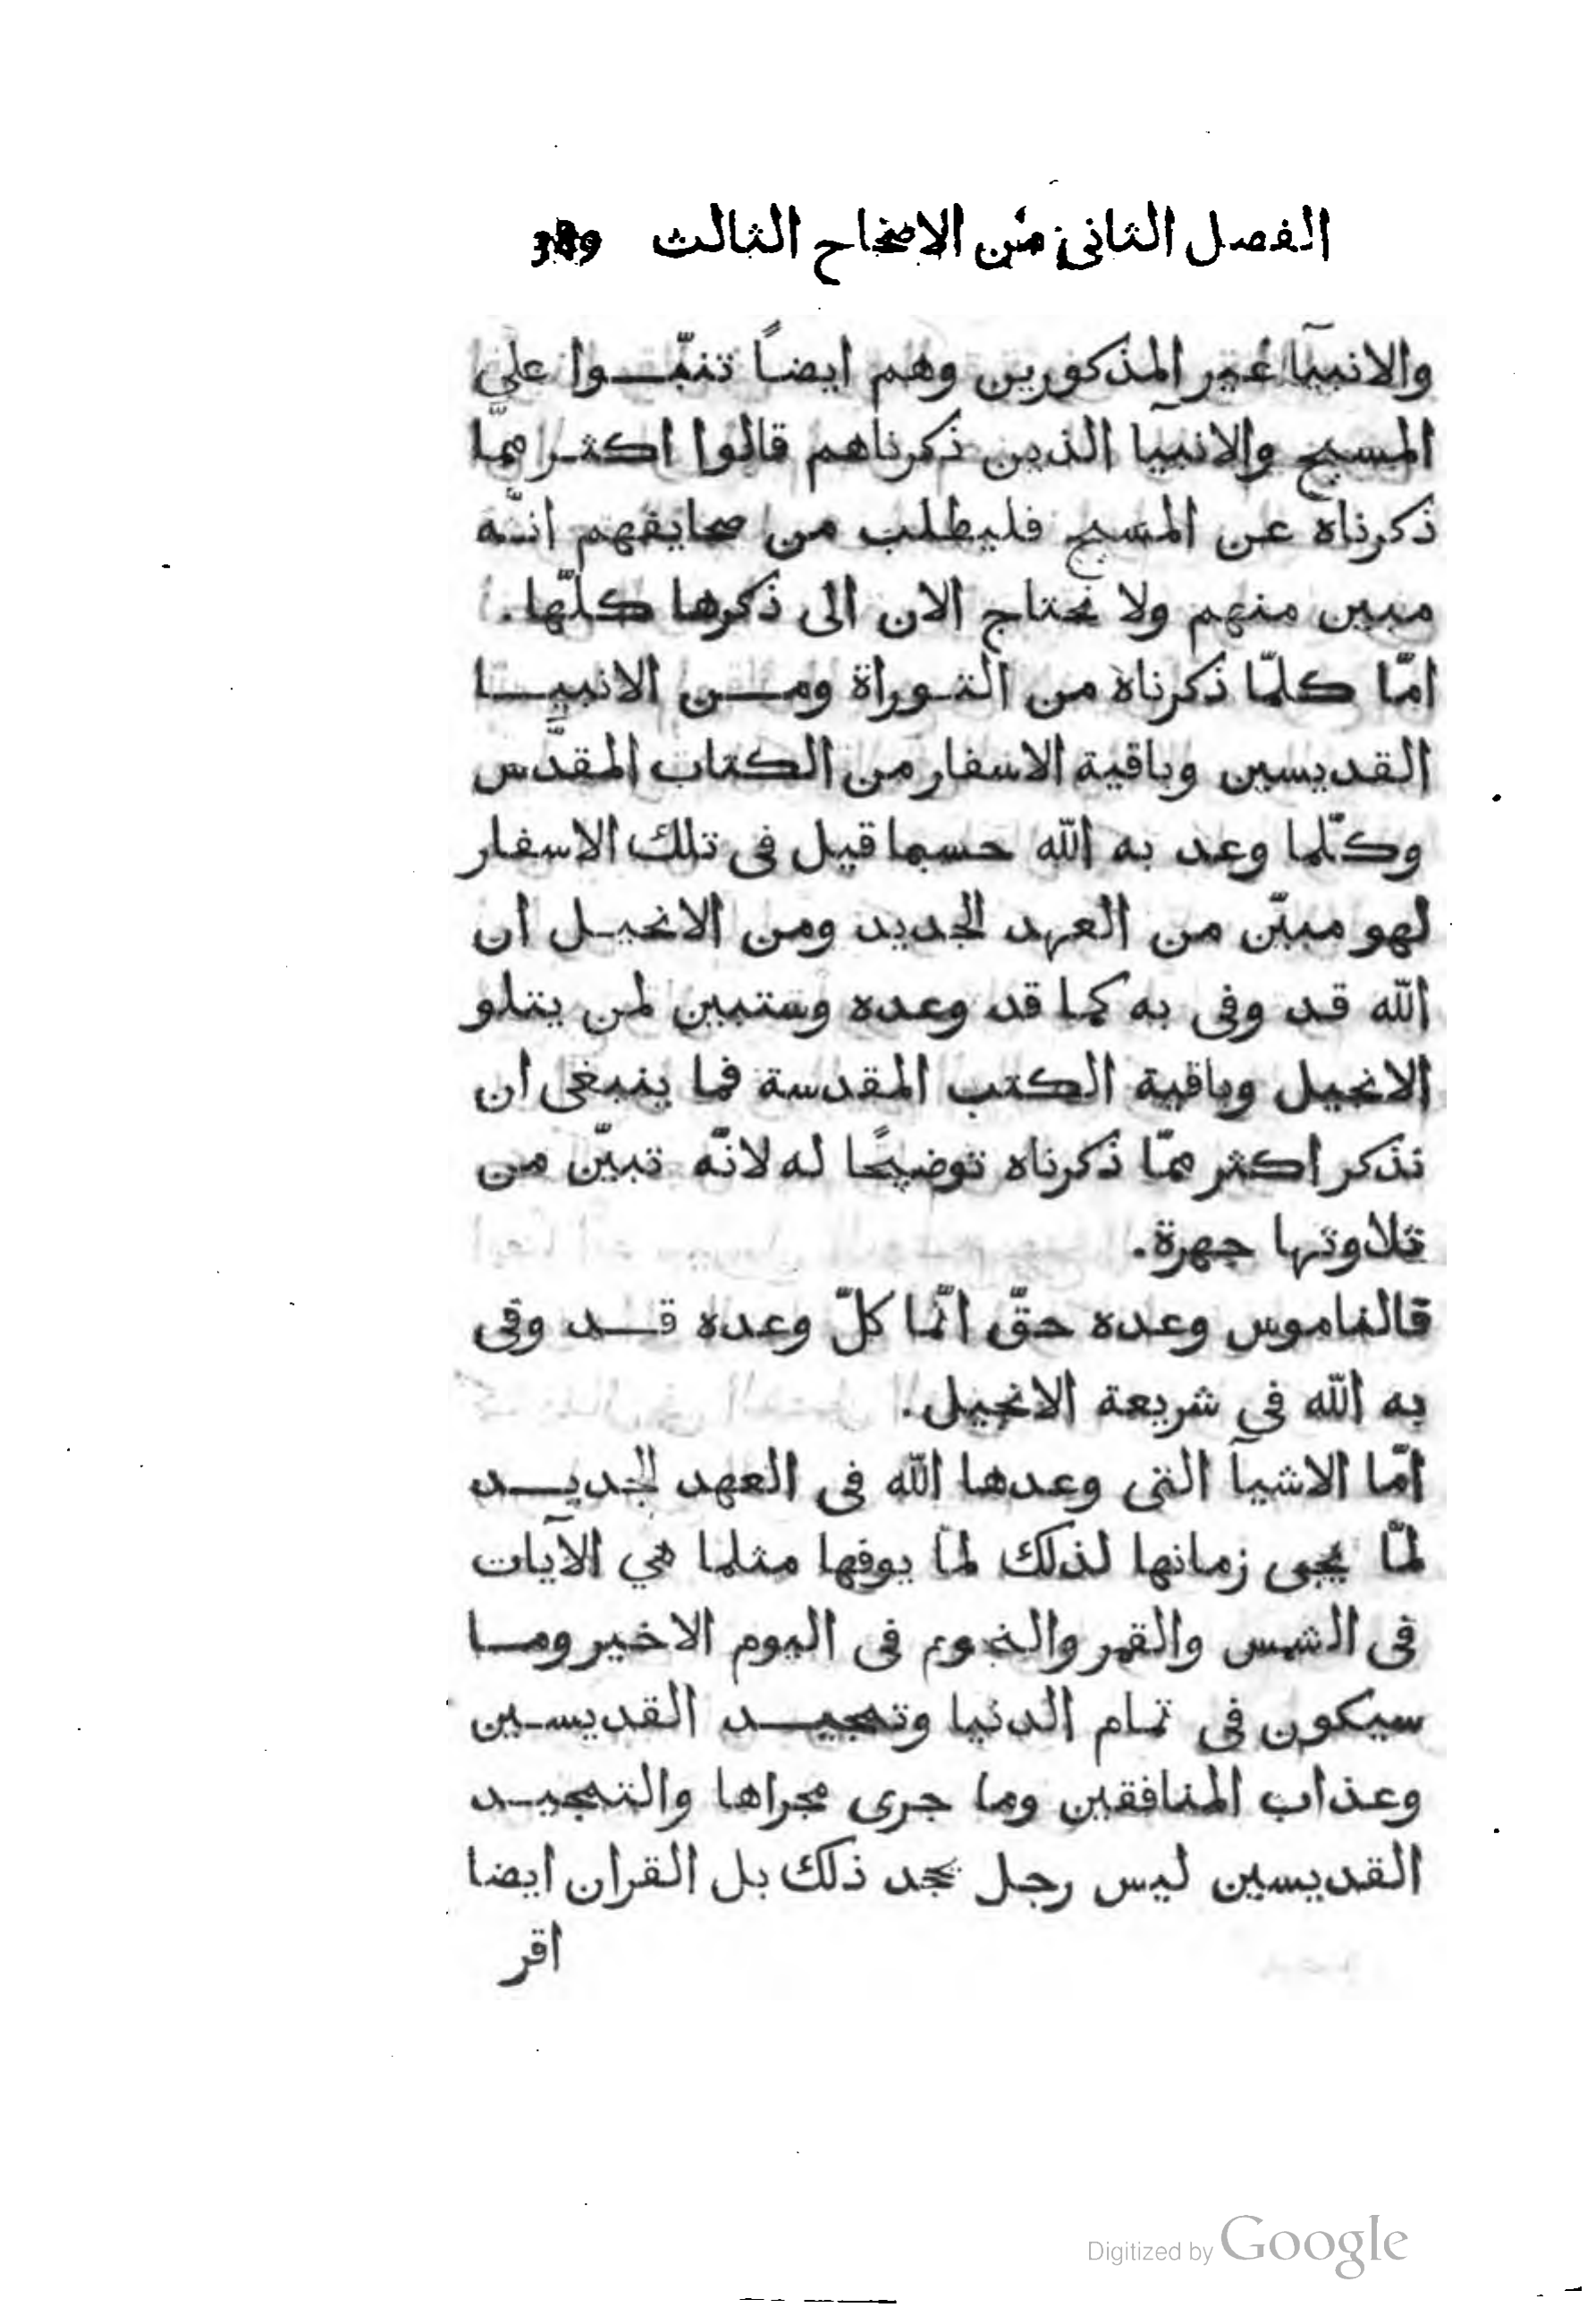 الفصل الثانى من الاصحاح الثالث 389
والانبيآ غير المذكورين وهم ايضاً تنبّـوا على
المسيح والانبيآ الذين ذكرناهم قالوا اكثر ممّا
ذكرناه عن المسيح فليطلب من صحايفهم انّه
مبين منهم ولا نحتاج الان الى ذكرها كلّها.
امّا كلّما ذكرناه من التوراة ومن الانبيا
القديسين وباقية الاسفار من الكتاب المقدَّس
وكلّما وعد به الله حسبما قيل فى تلك الاسفار
لهو مبيّن من العهد الجديد ومن الانجيل ان
الله قد وفى به كما قد وعده وستبين لمن يتلو
الانجيل وباقية الكتب المقدسة فما ينبغى ان
نذكر اكثر ممّا ذكرناه توضيحًا له لانّه تبيّن من
تلاوتها جهرة.
فالناموس وعده حقّ انّما كلّ وعده قد وفى
به الله فى شريعة الانجيل.
امّا الاشيآ التى وعدها الله فى العهد الجديد
لمّا يجى زمانها لذلك لمّا يوفها مثلما هي الآيات
فى الشمس والقمر والنجوم فى اليوم الاخير وما
سيكون فى تمام الدنيا وتمجيد القديسين
وعذاب المنافقين وما جرى مجراها والتمجيد
القديسين ليس رجل يجحد ذلك بل القران ايضا
اقر
Digitized by Google